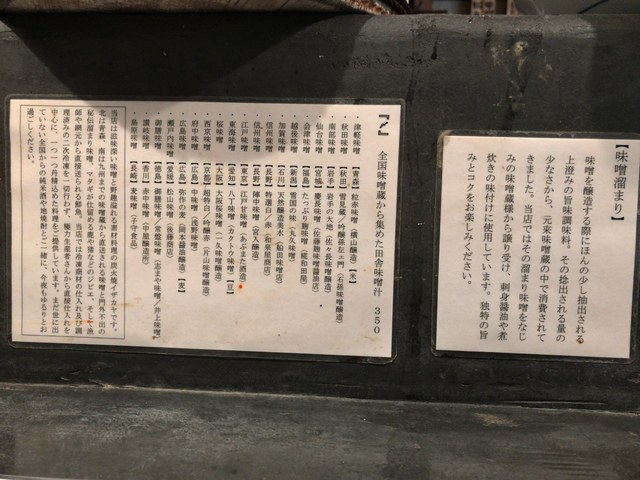 【味噌溜まり】
味噌を醸造する際にほんの少し抽出される
上澄みの旨味調味料。その捻出される量の
少なさから、元来味噌蔵の中で消費されて
きました。当店ではその溜まり味噌をなじ
みの味噌蔵様から譲り受け、刺身醤油や煮
炊きの味付けに使用しています。独特の旨
みとコクをお楽しみください。
『〆』 全国味噌蔵から集めた田舎味噌汁 350
・津軽味噌【青森】粒赤味噌(横山醸造)【米】
・秋田味噌【秋田】雪見蔵/吟醸孫左ェ門(石孫味噌醸造)
・南部味噌【岩手】岩手の大地(佐々長味噌醸造)
・仙台味噌【宮城】慶長味噌(佐藤麹味噌醤油店)
・会津味噌【福島】たっぷり麹味噌(糀和田屋)
・越後味噌【新潟】雪国の味(丸久味噌)
・加賀味噌【石川】天然醸清水(船田味噌店)
・信州味噌【長野】特選白/赤(和泉屋商店)
・信州味噌【長野】陣中味噌(宮入醸造)
・江戸味噌【東京】江戸甘味噌(あぶまた酒造)
・東海味噌【愛知】八丁味噌(カクトウ味噌)【豆】
・桜味噌【大阪】大阪桜味噌(一久味噌醸造)
・西京味噌【京都】超特白/吟醸赤(片山味噌醸造)
・府中味噌【広島】中味噌(浅野味噌)
・広島味噌【広島】弥作の麦(岡本醤油醸造)【麦】
・瀬戸内味噌【愛媛】松山味噌(後藤商店)
・御膳味噌【徳島】御膳味噌/常盤味噌(志まや味噌/井上味噌)
・讃岐味噌【香川】赤中味噌(中屋醸造所)
・島原味噌【長崎】麦味噌(子守食品)
当店は滋味深い味噌と野趣溢れる素材料理の炭火焼イザカヤです。
北は青森、南は九州までの味噌蔵から直送される味噌と門外不出の
秘伝溜まり味噌、マタギが仕留める鹿や猪などのジビエ、そして漁
師や網元から直接送られる鮮魚。当店では冷凍商材の仕入れ及び調
理済みの二次冷凍を一切行わず、極力生産者さんから直接仕入れを
中心に、一つ一つ丹精込めた料理をご提供しています。まだ世に出
ていない全国からの純米酒や地焼酎とご一緒に、今夜もゆるりとお
過ごしください。